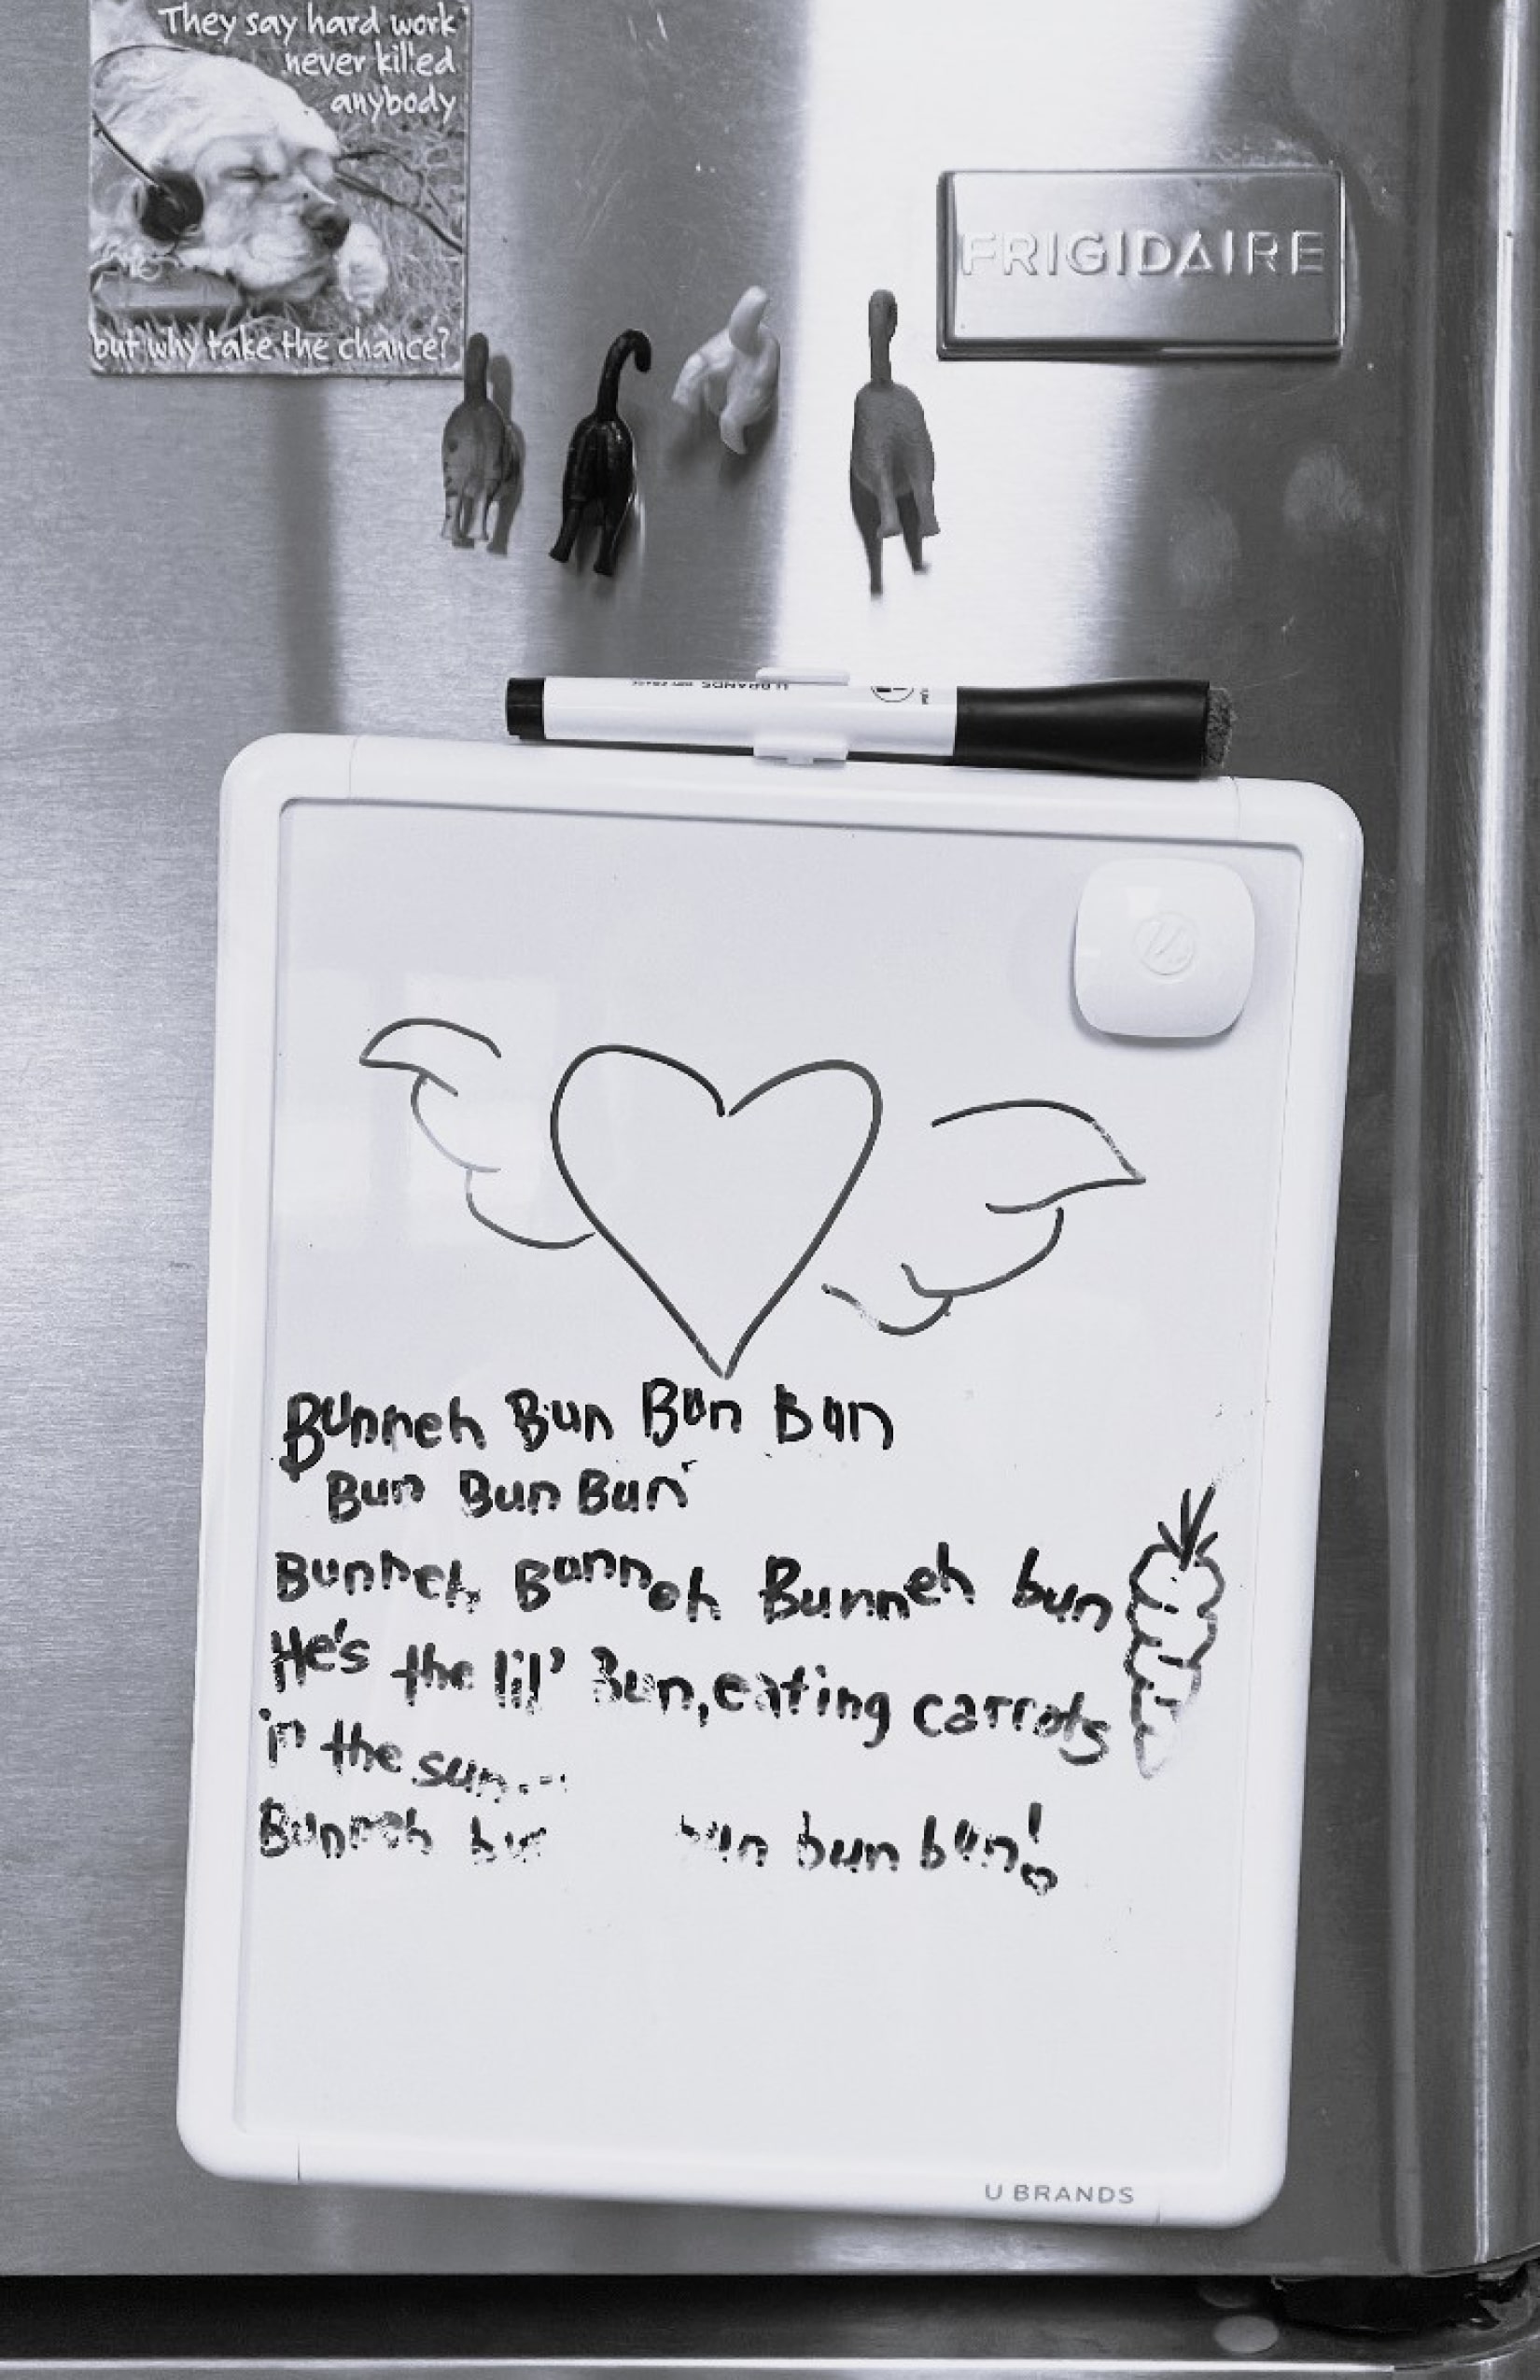 They say hard work
never killed
anybody
but why take the chance?
FRIGIDAIRE
U BRANDS
Bunneh Bun Bun Bun
Bun Bun Bun
Bunneh Bunneh Bunneh bun
He's the lil' Bun, eating carrots
in the sun...
Bunneh bun bun bun bun!
U BRANDS